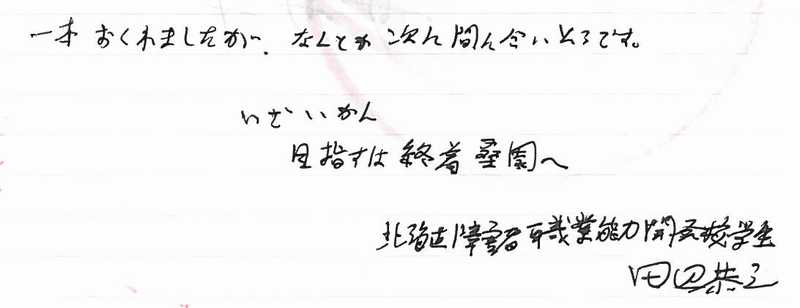 一本おくれましたが、なんとか次に間に合いそうです。
いざいかん
目指すは終着桑園へ
北海道障害者職業能力開発校学生
田辺恭